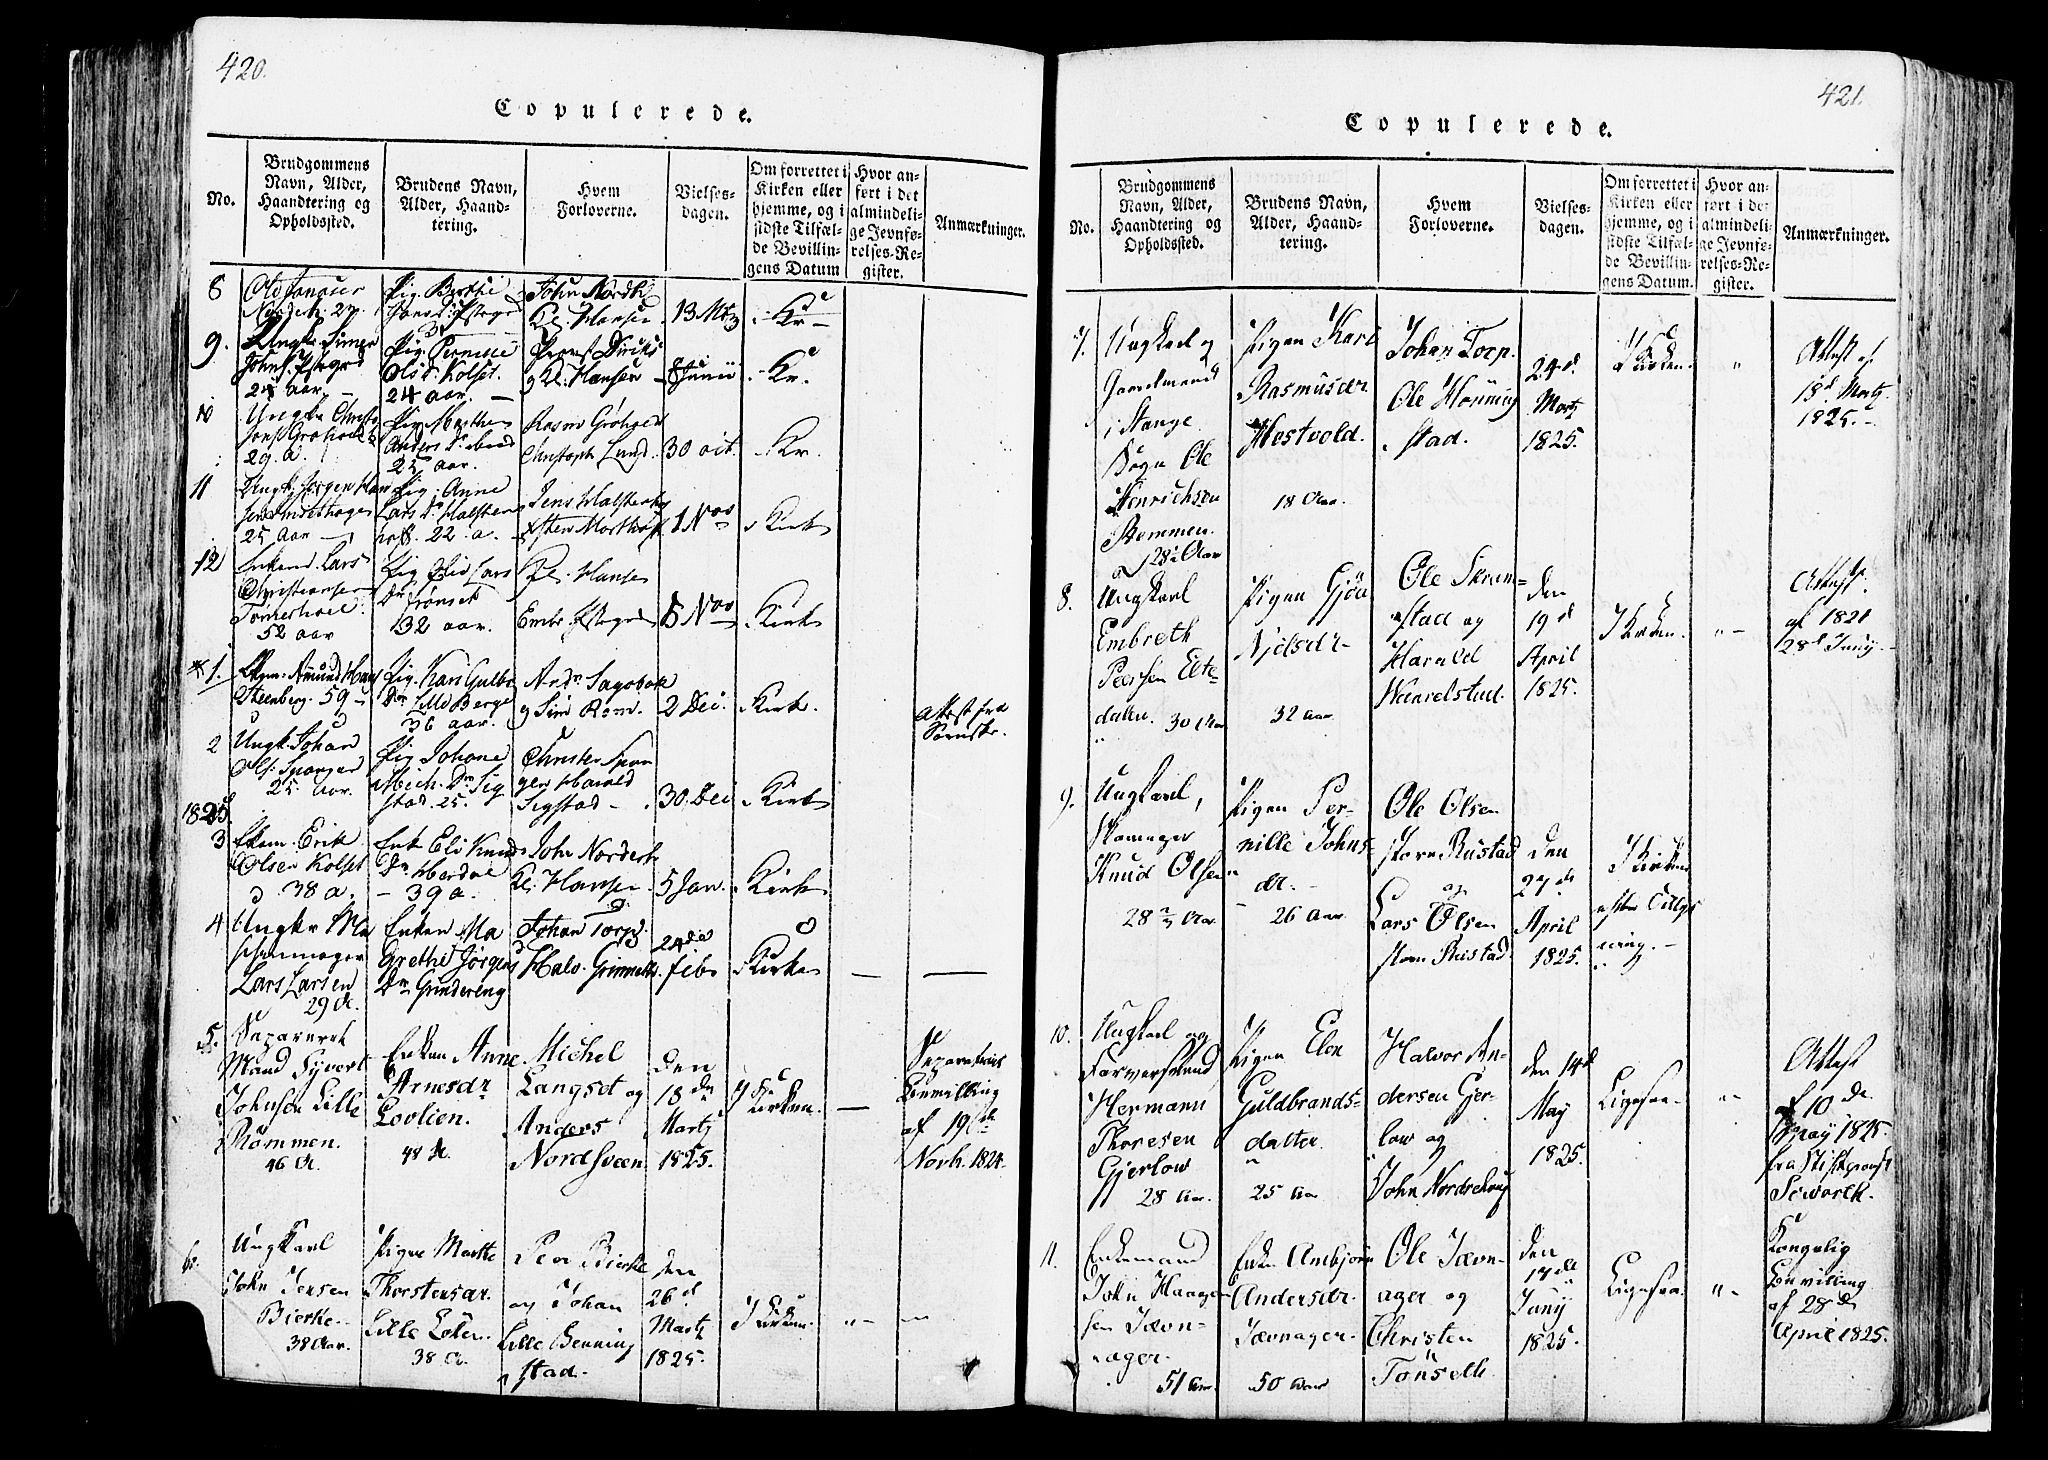 420.
Copulerede.
No.
Brudgommens
Navn, Alder,
Haandtering og
Opholdssted.
Brudens Navn,
Alder, Haand-
tering.
Hvem
Forloverne.
Vielses-
dagen.
Om forrettet i
Kirken eller
hjemme, og i
sidste Tilfæl-
de Bevillin-
gens Datum
Hvor an-
ført i det
almindeli-
ge Jevnfø-
relses-Re-
gister.
Anmærkninger.
8
Nordeh. 27.
Pig. Berthe
John Nordh
Kl. Hansen
13 Mtz
Kr
9.
Ungk. Simen
24 aar.
Pig. Pernille
Ols D. Kolset.
24 aar.
g Kl. Hansen
8 Junii
Kr.
10
Ungk. Christ
29. a.
Pig. Marthe
Anders D.
25 aar.
Rasm Grøhoel
Christoph Lund
30 oct.
Kr.
11
Ungk. Jørgen Han
25 aar
Pig. Anne
Lars D. Halsten
hof. 22. a.
Jens Halstenh
1 Nov
Kirk
12
Enkem. Lars
Christiansen
52 aar
Pig Lars
Dr Tønset
32 aar.
Kl. Hansen
Embr
5 Nov
Kirk
1.
Ekm. Amund Hans
Steenberg. 59
Pig. Kari Gulb
Dr Lille Berge
36 aar.
Andr Sagabak
g Sim Rom.
2 Dec.
Kirk.
attest fra
2
Ungk. Johan
Ols. Spanger
25 aar.
Pig Johane
Mich. Dr Sig
stad. 25.
Christen Span
ger Harald
Sigstad
30. Dec
Kirk
1825.
3
Ekem. Erik
Olsen Kolset
38 a.
Enk Eli Knuds
Dr
39 a.
John Norderh
Kl. Hansen
5 Jan.
Kirk
4
Ungkr
Lars Larsen
29 A.
Enken Ma
Grethe Jørgens
Dr Grindereng
Johan Torp
Halv. Grimmelh
24de
feb.
Kirke
5.
Separeret
Mand Syvert
Johnsen Lille
Rømmen.
46 A.
Enken Anne
Arnesdr
Lovlien.
48 A.
Michel
Langset og
Anders
Nordsveen
den
18de
Martz
1825.
I
Kirken.
Separations
Bevilling
af 19de
Novb. 1824.
6.
Ungkarl
John Jensen
Bierke
38 Aar.
Pigen Marthe
Thorstensdr.
Lille Løten.
38 A.
Peer Bierke
og Johan
Lille Henning
stad.
den
26d
Martz
1825.
I Kirken.
421.
Copulerede.
No.
Brudgommens
Navn, Alder,
Haandtering og
Opholdssted.
Brudens Navn,
Alder, Haand-
tering.
Hvem
Forloverne.
Vielses-
dagen.
Om forrettet i
Kirken eller
hjemme, og i
sidste Tilfæl-
de Bevillin-
gens Datum.
Hvor an-
ført i det
almindeli-
ge Jevnfø-
relses-Re-
gister.
Anmærkninger.
7.
Ungkarl og
Gaardmand
i Stange
Sogn Ole
Henrichsen
Remmen.
28½ Aar
Pigen Kari
Rasmusdr
Hestvold.
18 Aar.
Johan Torp.
Ole Hønning
stad.
24d
Martz
1825.
I Kirken.
"
Attest af
15d Martz
1825.
8.
Ungkarl
Embreth
Peersen Elte-
dalen. 30 Aar
Pigen Gjøa
Njelsdr
32 aar.
Ole Skram-
stad og
Harald
den
19d
April
1825.
I Kirken.
"
Attest.
af 1821
28d Juny.
9.
Ungkarl,
Skomager
Knud Olsen
28 Aar.
Pigen Per-
nille Johns-
dr.
26 Aar.
Ole Olsen
store Rustad
og
Lars Olsen
store Rustad.
den
27d
April
1825.
I Kirken
efter Tillys
ning.
10.
Ungkarl og
Farversvend
Hermann
Thoresen
Gjerlow
28 Aar.
Pigen Elen
Guldbrands-
datter
25 Aar
Halvor An-
dersen Gjer-
low og
John Nordrehoug
den 14d
May
1825.
Ligesaa.
"
Attest
af 10de
May 1825.
fra Stiftsprovst
11.
Enkemand
John Haagen
sen Jævn-
ager.
51 Aar.
Enken Ambjør
Andersdr.
Jævnager.
50 Aar
Ole Jævn-
ager og
Christen
Tønseth
den
17de
Juny
1825.
Ligesaa.
"
Kongelig
Bevilling
af 28de
April 1825.